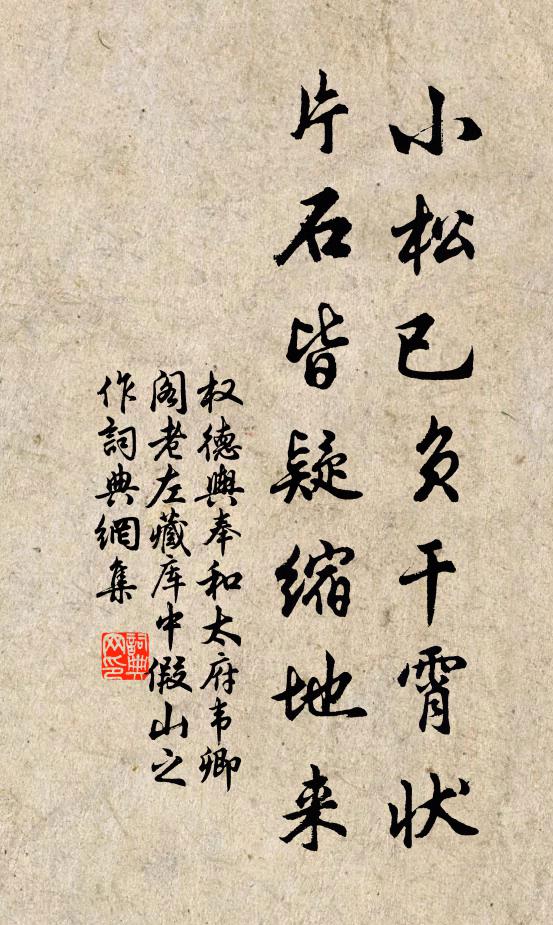 小松已负干霄状
片石皆疑缩地来
权德舆奉和太府韦卿
阁老左藏库中假山之
作詞典網集
詞典
网印